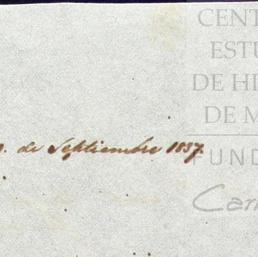 CENT
ESTU
DE HI
DE M
de Septiembre 1837.
FUND
Car